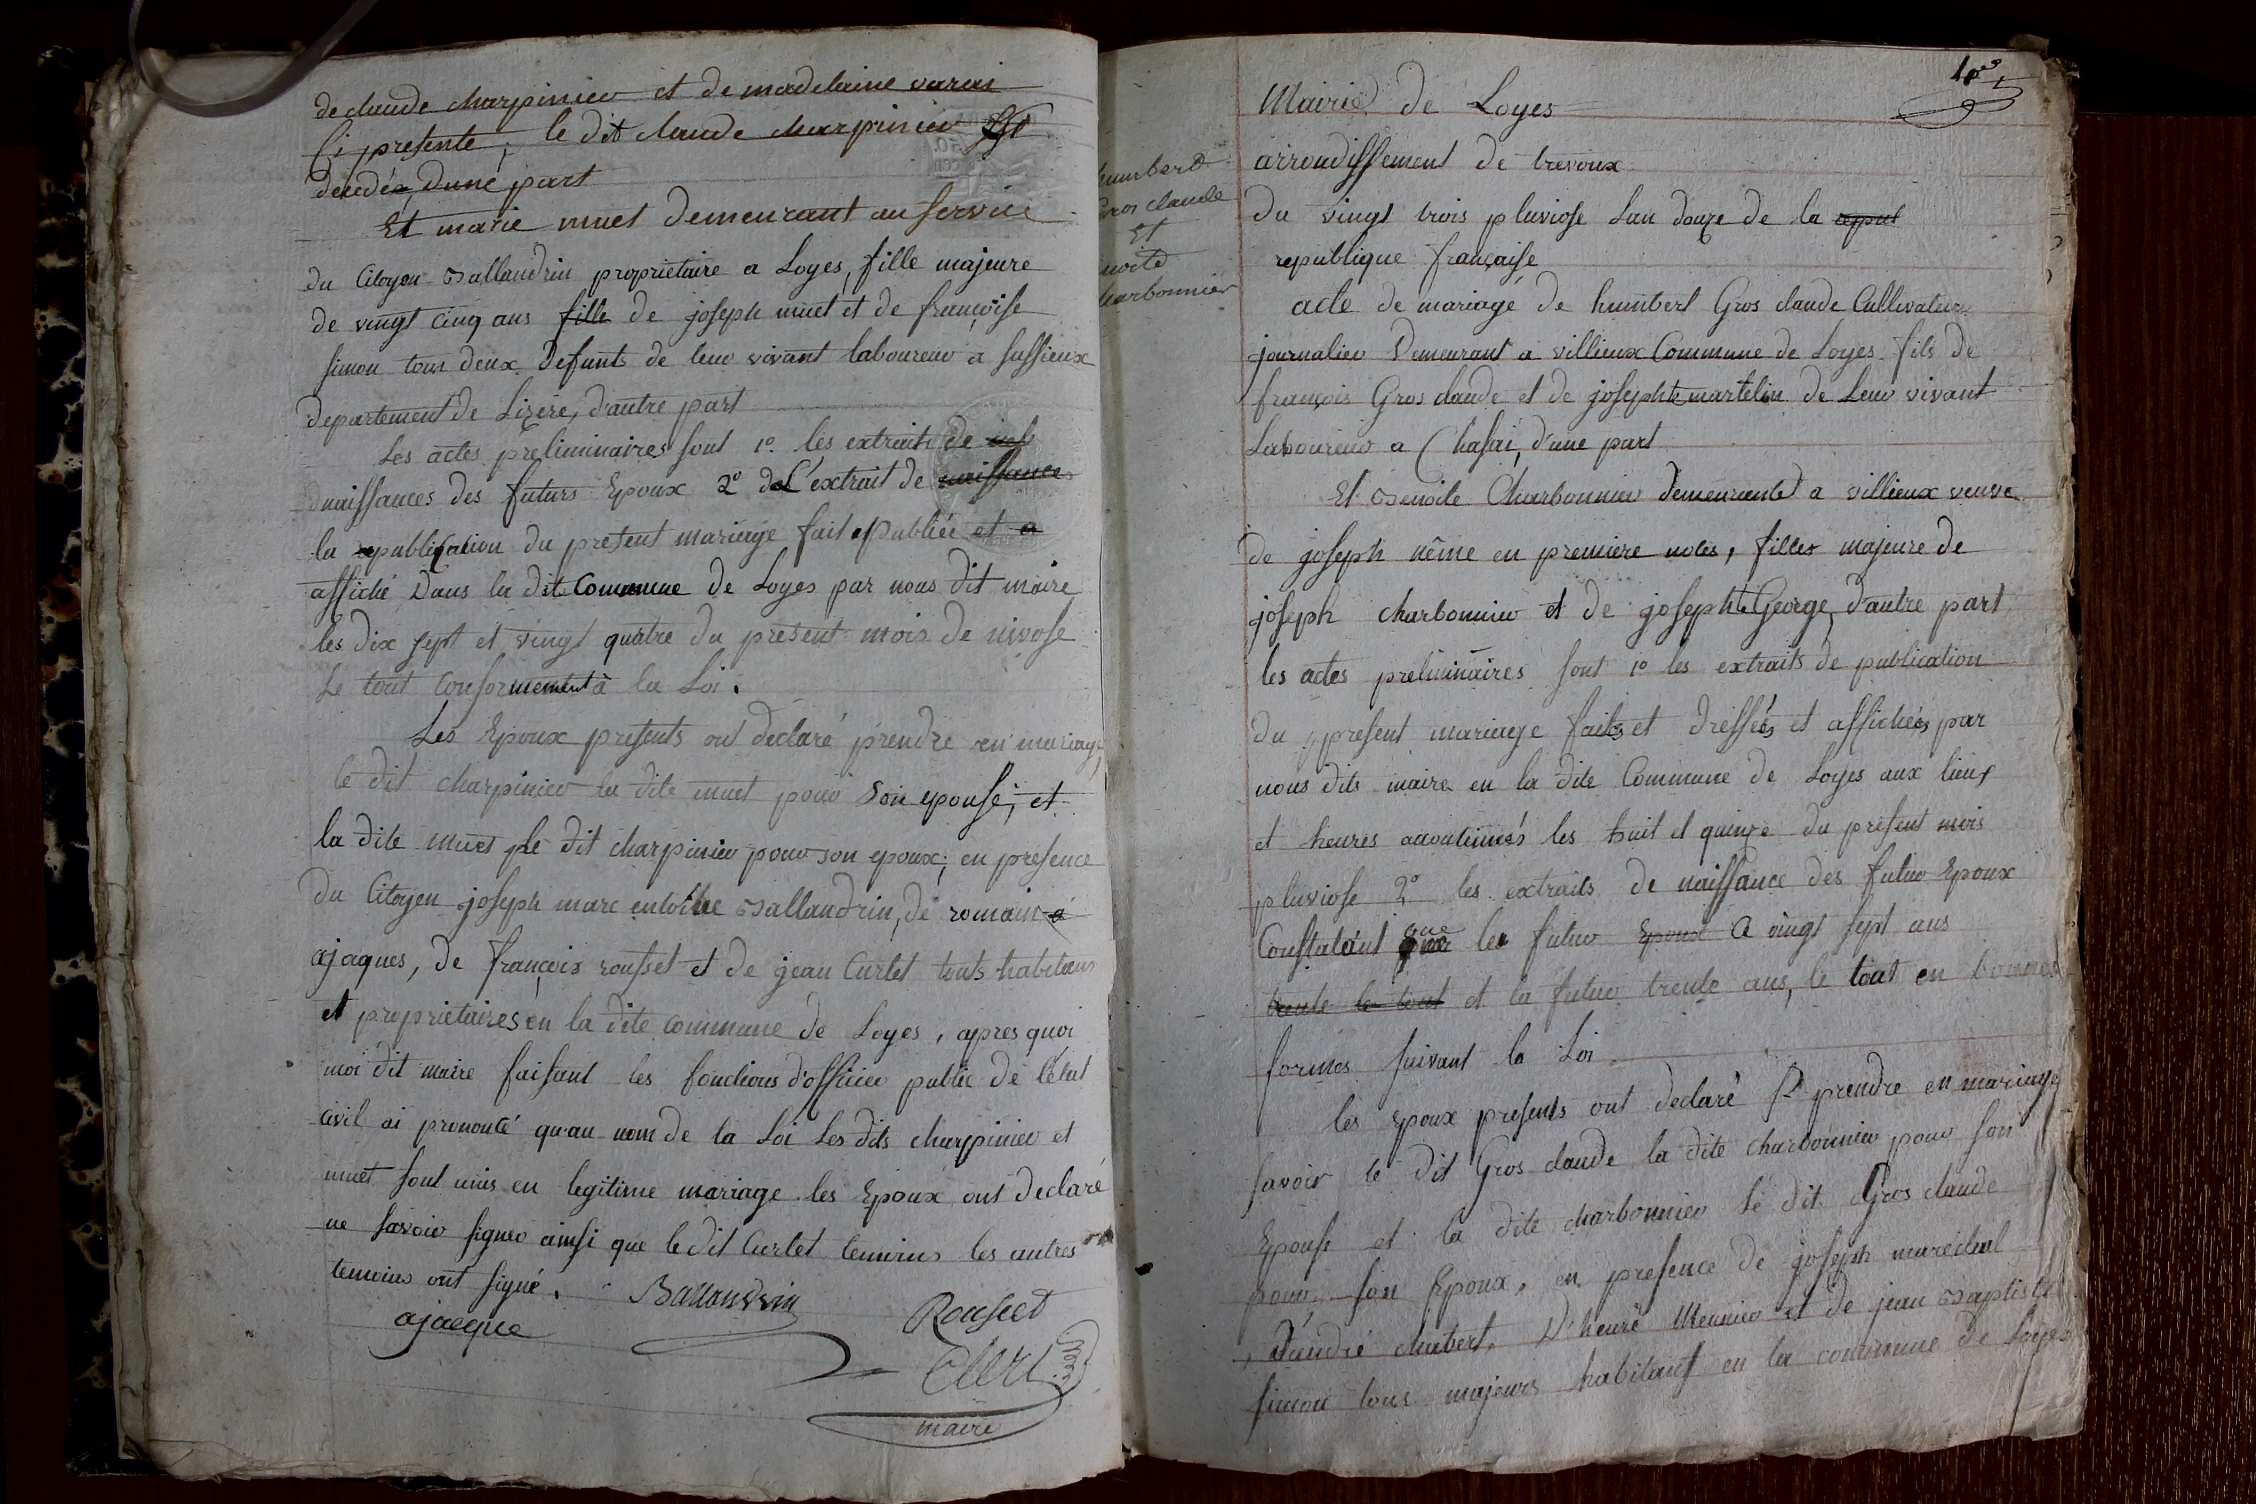 de claude charpinier et de madelaine varai
Ci presente, le dit claude charpinier est
decedé, dune part
Et marie muet demeurant au service
du Citoyen Ballandrin proprietaire a Loyes, fille majeure
de vingt cinq ans fille de joseph muet et de françoise
simon tous deux defunts de leur vivant laboureur a sussieux
departement de Lizere, d'autre part
Les actes preliminaires sont 1º les extraits de
naissances des futurs Epoux 2º de L'extrait de naissance
la publication du present mariage fait et publiée et a
affiché Dans la dite Commune de Loyes par nous dit maire
les dix sept et vingt quatre du present mois de nivose
Le tout conformement à la Loi.
Les Epoux presents ont declaré prendre en mariage
le dit charpinier la dite muet pour son epouse; et
la dite muet le dit charpinier pour son epoux; en presence
du Citoyen joseph marc entoine Ballandrin, de romain
ajaques, de françois rousset et de jean Curlet touts habitans
et proprietaires en la dite commune de Loyes, apres quoi
moi dit maire faisant les fonctions d'officier public de létat
civil ai prononcé qu'au nom de la Loi Les dits charpinier et
muet sont unis en legitime mariage les Epoux ont declaré
ne savoir signer ainsi que le dit Curlet temoins les autres
temoins ont signé.
Ballandrin
Rousset
ajacque
maire
humbert
Gros claude
Et
charbonnier
Mairie de Loyes
arrondissement de trevoux
du vingt trois pluviose Lan douze de la repul
republique française
acte de mariage de humbert Gros claude Cultivateur
journalier Demeurant a villieux Commune de Loyes fils de
françois Gros claude et de josephte martelin de Leur vivant
Laboureur a Chasai, d'une part
Et Benoite Charbonnier demeurante a villieux veuve
de joseph nême en premiere notes, filles majeure de
joseph charbonnier et de josephte George, d'autre part
les actes preliminaires sont 1º les extraits de publication
du present mariage faits et dressés et affichés par
nous dits maire en la dite Commune de Loyes aux lieux
et heures accoutumés les huit et quinze du present mois
pluviose 2º les extraits de naissance des futur Epoux
Constatant que le futur Epoux a vingt sept ans
trente le tout et la futur trente ans, le tout en bonnes
formes suivant la Loi
les Epoux presents ont declaré se prendre en mariage
savoir le dit Gros claude la dite charbonnier pour son
Epouse et la dite charbonnier le dit Gros claude
pour son Epoux, en presence de joseph marechal
, d'andré chubert, D'henrê Meunier et de jean Baptiste
simon tous majeurs habitant en la commune de Loyes